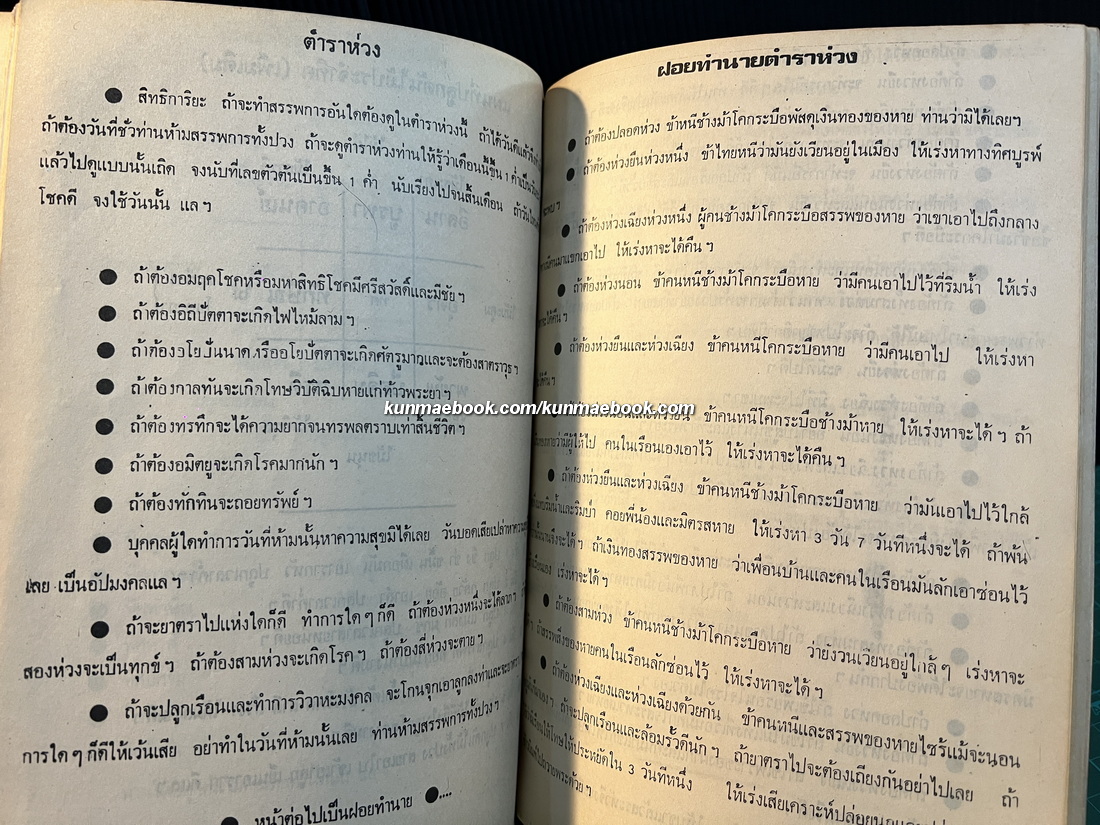 ตำราห่วง
● สิทธิการิยะ ถ้าจะทำสรรพการอันใดต้องดูในตำราห่วงนี้ ถ้าได้วันดีแล้วจึง
ถ้าต้องวันที่ชั่วท่านห้ามสรรพการทั้งปวง ถ้าจะดูตำราห่วงท่านให้รู้ว่าเดือนนี้ขึ้น 1 ค่ำ
แล้วไปดูแบบนั้นเถิด จงนับที่เลขตัวต้นเป็นขึ้น 1 ค่ำ นับเรียงไปจนสิ้นเดือน
โชคดี จงใช้วันนั้น แลฯ
● ถ้าต้องอมฤคโชคหรือมหาสิทธิโชคมีศรีสวัสดิ์และมีชัยฯ
● ถ้าต้องอิถีปัตตาจะเกิดไฟไหม้ลามฯ
● ถ้าต้อง หรืออโยปัตตาจะเกิดศัตรูมาฤและจะต้องสาตราวุธฯ
● ถ้าต้องกาลทันจะเกิดโทษวิบัติฉิบหายแก่ท้าวพระยาฯ
● ถ้าต้องทรทึกจะได้ความยากจนทรพลตราบเท่าสิ้นชีวิตฯ
● ถ้าต้องอมิตยูจะเกิดโรคมากนักฯ
● ถ้าต้องทักทินจะถอยทรัพย์ฯ
● บุคคลผู้ใดทำการวันที่ห้ามนั้นหาความสุขมิได้เลย วันบอดเสียเปล่า
เลย เป็นอัปมงคลแลฯ
● ถ้าจะยาตราไปแห่งใดก็ดี ทำการใดๆก็ดี ถ้าต้องห่วงหนึ่งจะได้ลาภฯ
สองห่วงจะเป็นทุกข์ฯ ถ้าต้องสามห่วงจะเกิดโรคฯ ถ้าต้องสี่ห่วงจะตายฯ
● ถ้าจะปลูกเรือนและทำการวิวาหะมงคล จะโกนจุกเอาลูกลงท่าและ
การใดๆก็ดีให้เว้นเสีย อย่าทำในวันที่ห้ามนั้นเลย ท่านห้ามสรรพการทั้งปวงฯ
● หน้าต่อไปเป็นฝอยทำนาย ●....
ฝอยทำนายตำราห่วง
● ถ้าต้องปลอดห่วง ข้าหนีช้างม้าโคกระบือพัสดุเงินทองของหาย ท่านว่ามิได้เลยฯ
● ถ้าต้องห่วงยืนห่วงหนึ่ง ข้าไทยหนีว่ามันยังเวียนอยู่ในเมือง ให้เร่งหาทางทิศบูรพ์
● ถ้าต้องห่วงเฉียงห่วงหนึ่ง ผู้คนช้างม้าโคกระบือสรรพของหาย ว่าเขาเอาไปถึงกลาง
เอาไป ให้เร่งหาจะได้คืนฯ
● ถ้าต้องห่วงนอน ข้าคนหนีช้างม้าโคกระบือหาย ว่ามีคนเอาไปไว้ที่ริมน้ำ ให้เร่ง
ได้คืนฯ
● ถ้าต้องห่วงยืนและห่วงเฉียง ข้าคนหนีโคกระบือหาย ว่ามีคนเอาไป ให้เร่งหา
ได้คืนฯ
ข้าคนหนีโคกระบือช้างม้าหาย ให้เร่งหาจะได้ฯ ถ้า
ของหายว่ามีผู้ให้ไป คนในเรือนเองเอาไว้ ให้เร่งหาจะได้คืนฯ
● ถ้าต้องห่วงยืนและห่วงเฉียง ข้าคนหนีช้างม้าโคกระบือหาย ว่ามันเอาไปไว้ใกล้
ริมน้ำและริมป่า คอยพี่น้องและมิตรสหาย ให้เร่งหา 3 วัน 7 วันทีหนึ่งจะได้ ถ้าพ้น
จะได้ฯ ถ้าเงินทองสรรพของหาย ว่าเพื่อนบ้านและคนในเรือนมันลักเอาซ่อนไว้
เร่งหาจะได้ฯ
● ถ้าต้องสามห่วง ข้าคนหนีช้างม้าโคกระบือหาย ว่ายังวนเวียนอยู่ใกล้ๆ เร่งหาจะ
ถ้าสรรพสิ่งของหายคนในเรือนลักซ่อนไว้ ให้เร่งหาจะได้ฯ
● ถ้าต้องห่วงเฉียงและห่วงเฉียงด้วยกัน ข้าคนหนีและสรรพของหายไซร้แม้จะนอน
ถ้าจะปลูกเรือนและล้อมรั้วดีนักฯ ถ้ายาตราไปจะต้องเถียงกันอย่าไปเลย ถ้า
ให้โทษให้ประหยัดใน 3 วันทีหนึ่ง ให้เร่งเสียเคราะห์ปล่อย
kunmaebook.com/kunmaebook.com